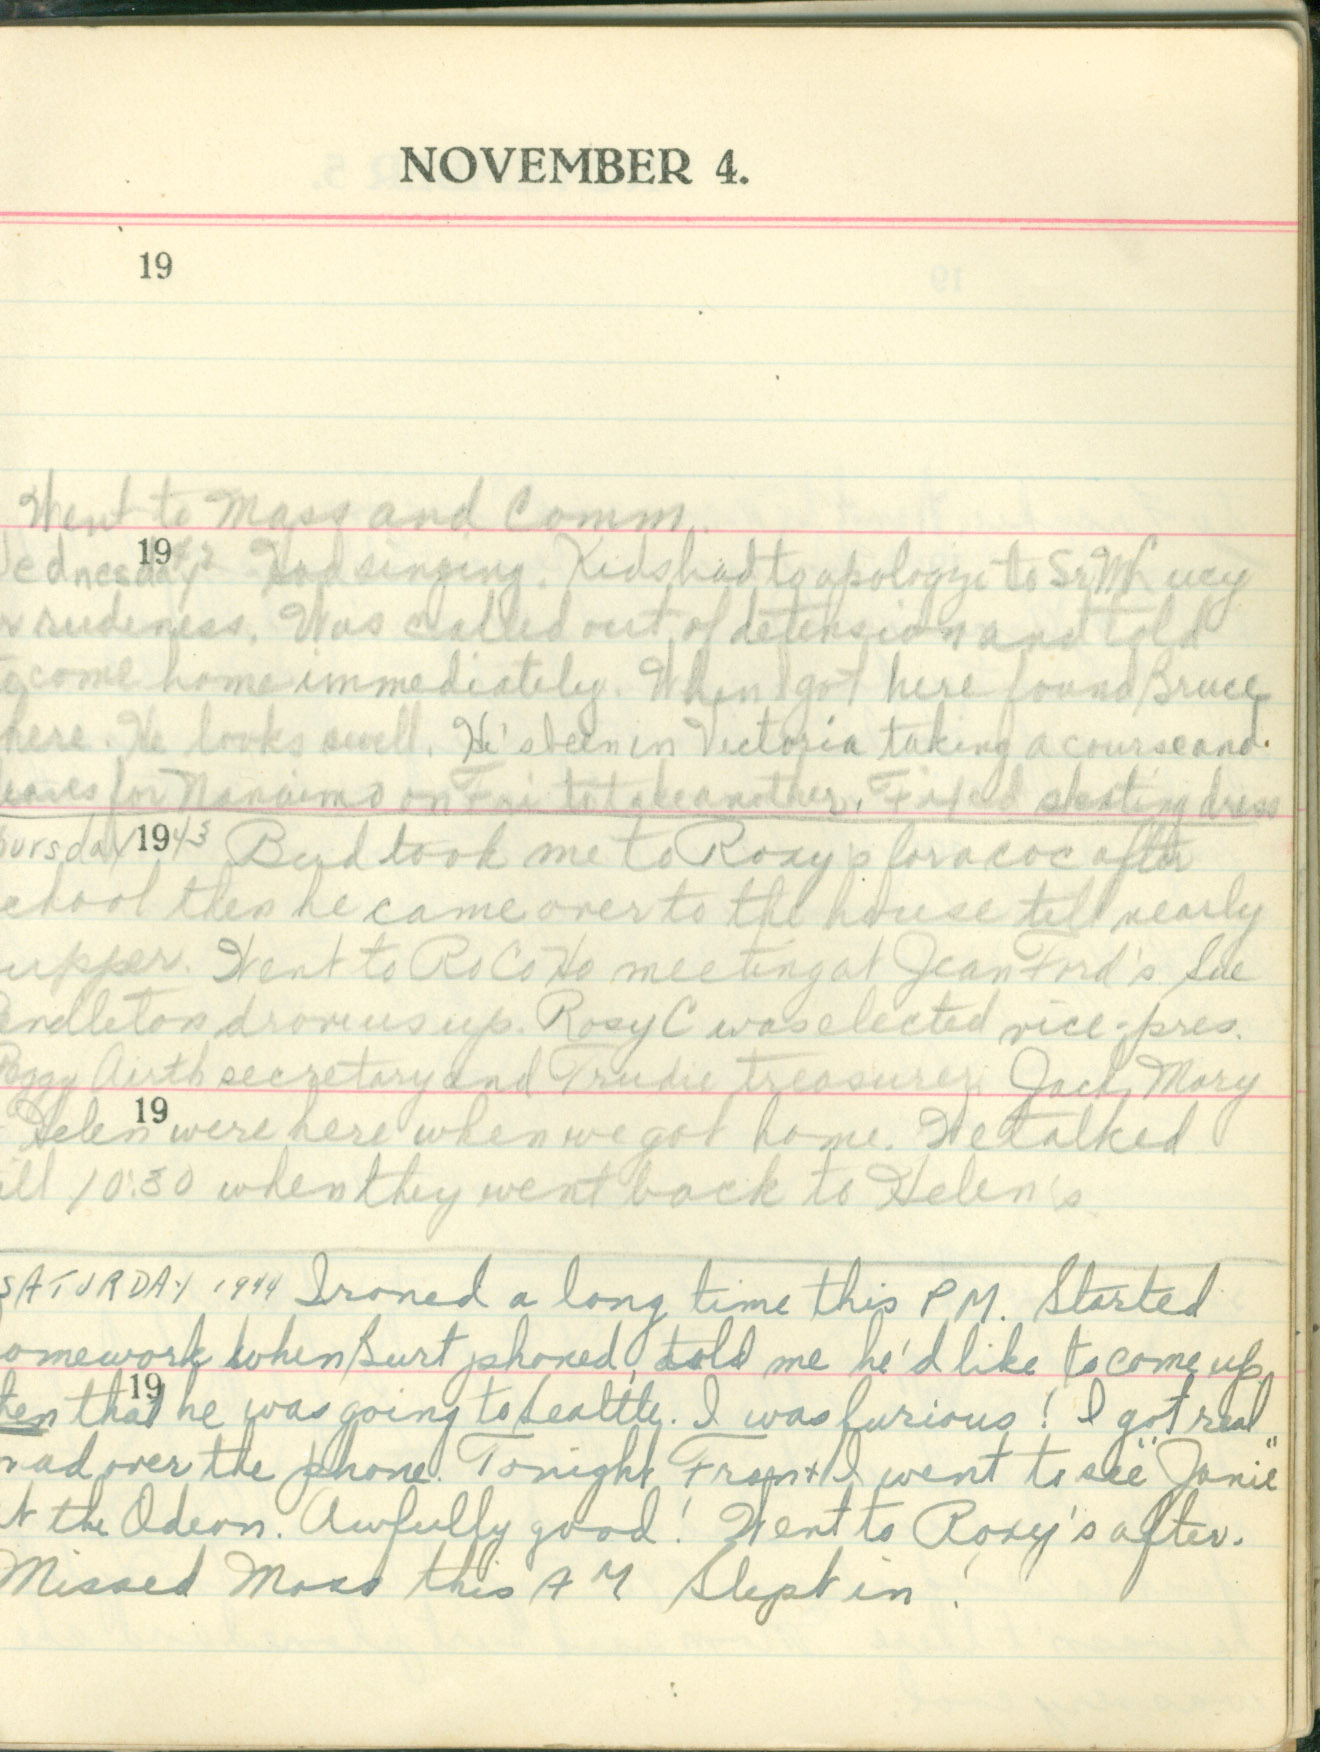 NOVEMBER 4.
19
Went to Mass and Comm.
19
ednesday 42 Had singing. Kids had to apologize to Sr. M Lucy
r rudeness. Was called out of detension and told
o come home immediately. When I got here found Bruce
here. He looks swell. He's been in Victoria taking a course and
leaves for Nanaimo on Fri to take another. Fixed skating dress
hursday 1943 Bud took me to Roxy's for a coc after
chool then he came over to the house till nearly
upper. Went to RoCoHo meeting at Jean Ford's. Sue
endleton drove us up. Rosy C was elected vice-pres.
Peggy Airth secretary and Trudie treasurer. Jack, Mary
19
Helen were here when we got home. We talked
ill 10:30 when they went back to Helen's
SATURDAY 1944 Ironed a long time this P M. Started
omework when Burt phoned, told me he'd like to come up,
19
hen that he was going to Seattle. I was furious! I got real
mad over the phone. Tonight Fran + I went to see "Janie"
at the Odeon. Awfully good! Went to Roxy's after.
Missed Mass this A M Slept in!